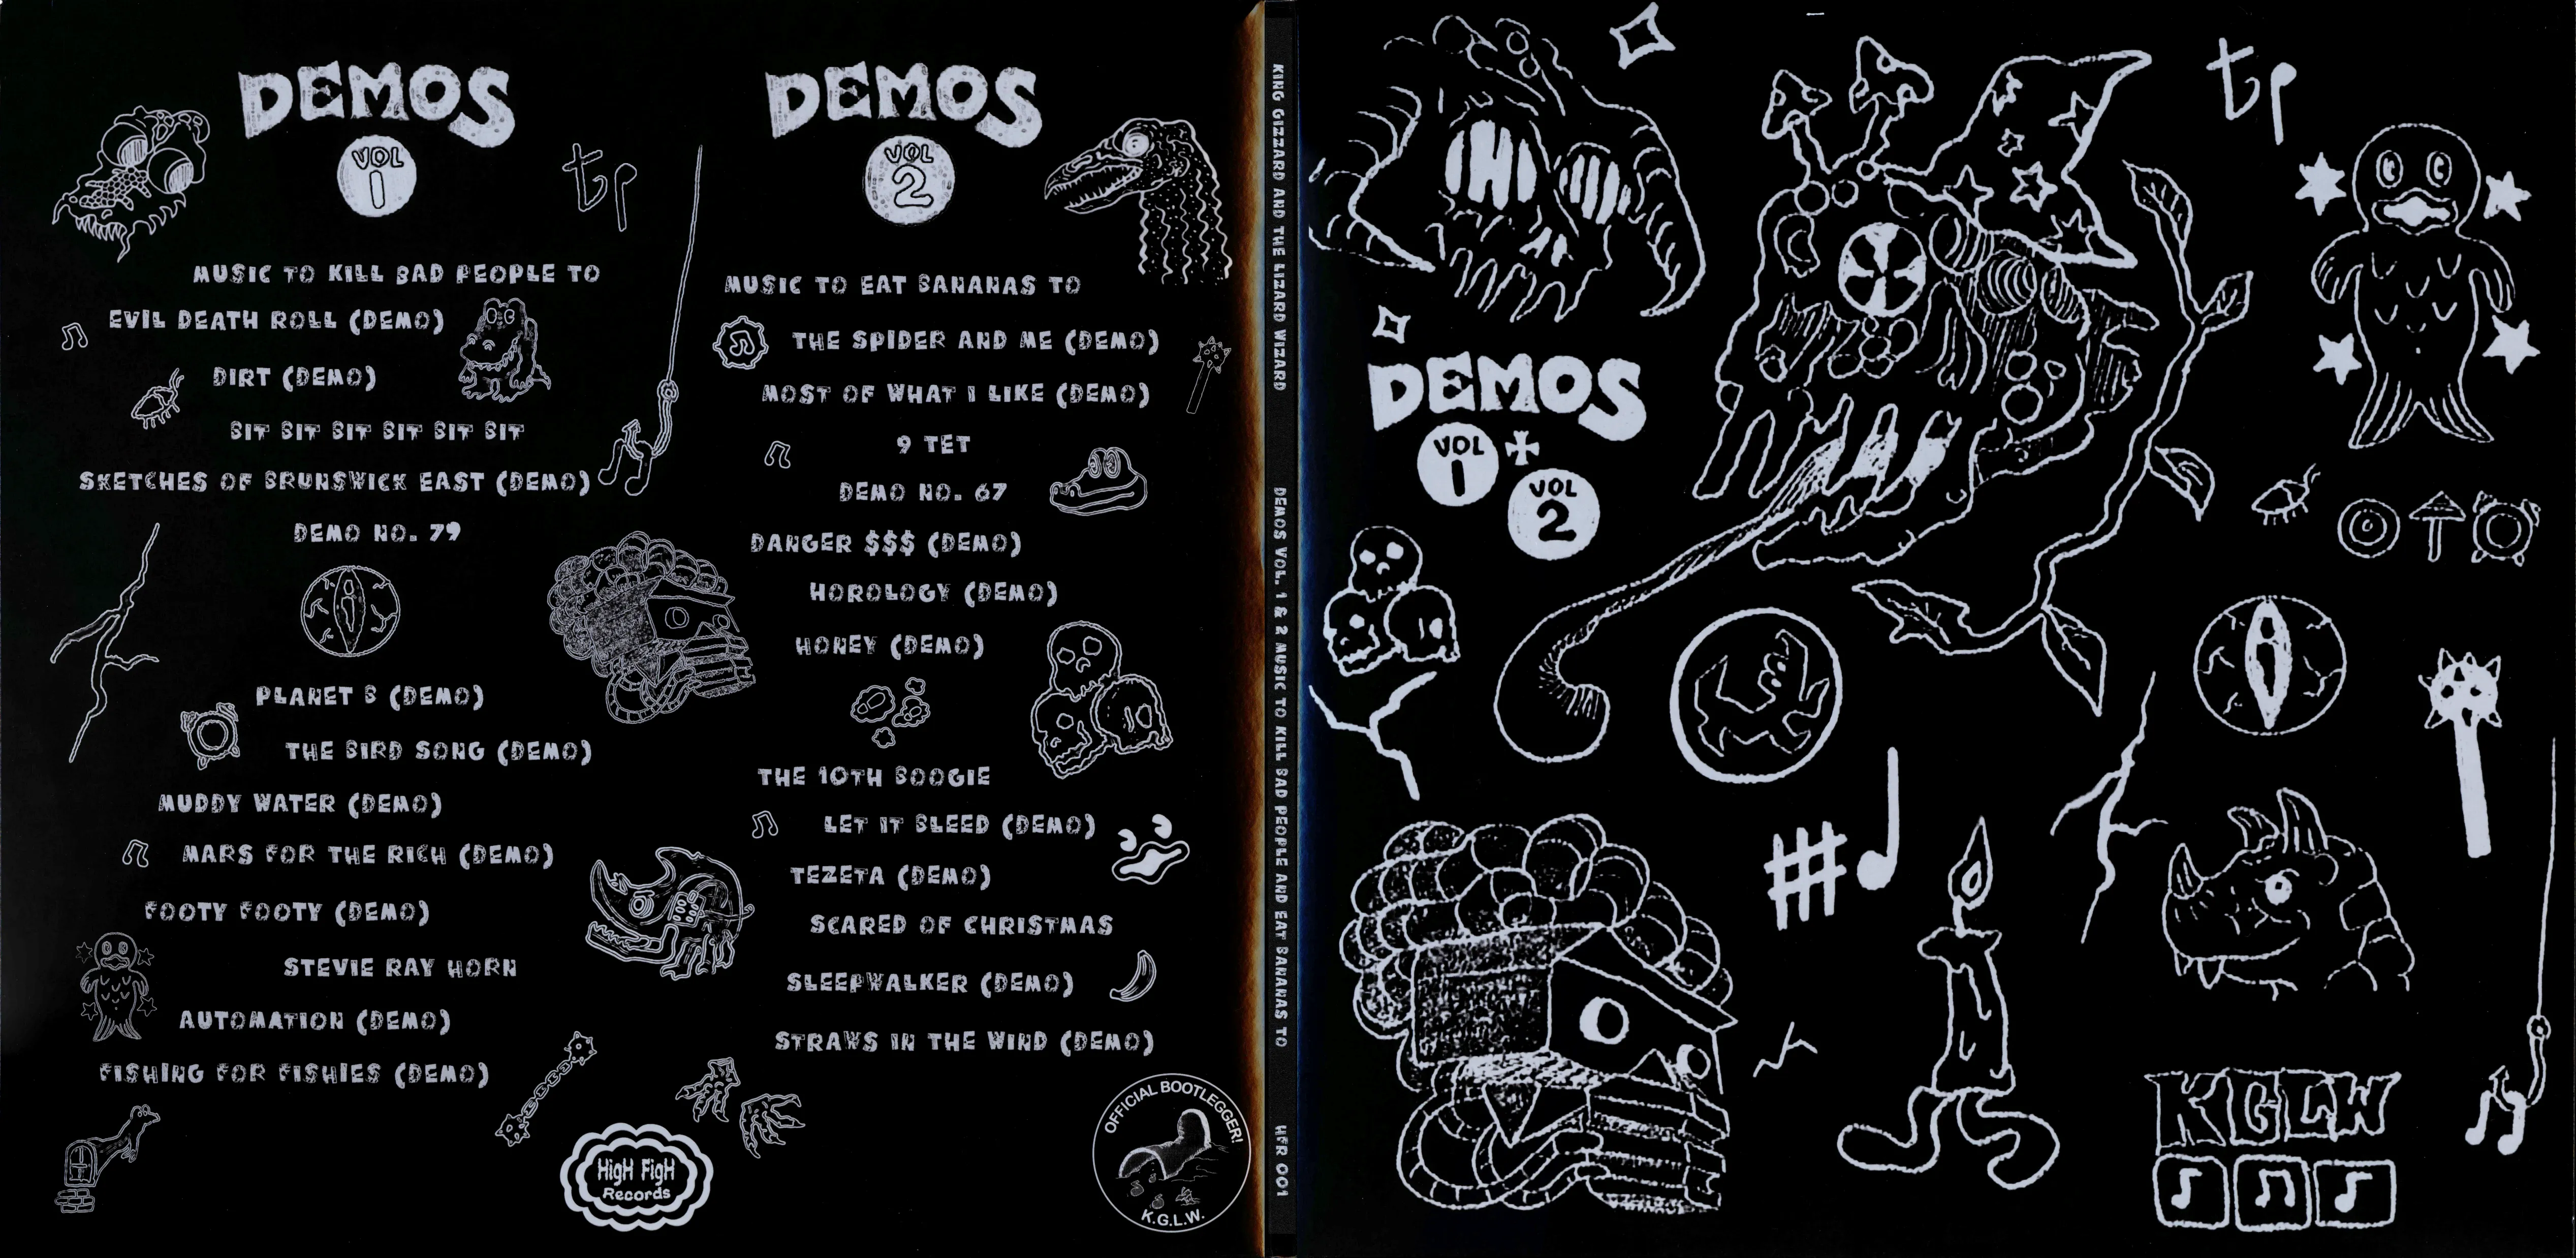 DEMOS
VOL
1
tp
MUSIC TO KILL BAD PEOPLE TO
EVIL DEATH ROLL (DEMO)
DIRT (DEMO)
BIT BIT BIT BIT BIT BIT
SKETCHES OF BRUNSWICK EAST (DEMO)
DEMO NO. 79
PLANET B (DEMO)
THE BIRD SONG (DEMO)
MUDDY WATER (DEMO)
MARS FOR THE RICH (DEMO)
FOOTY FOOTY (DEMO)
STEVIE RAY HORN
AUTOMATION (DEMO)
FISHING FOR FISHIES (DEMO)
HigH FigH
Records
DEMOS
VOL
2
MUSIC TO EAT BANANAS TO
THE SPIDER AND ME (DEMO)
MOST OF WHAT I LIKE (DEMO)
9 TET
DEMO NO. 67
DANGER $$$ (DEMO)
HOROLOGY (DEMO)
HONEY (DEMO)
THE 10TH BOOGIE
LET IT BLEED (DEMO)
TEZETA (DEMO)
SCARED OF CHRISTMAS
SLEEPWALKER (DEMO)
STRAWS IN THE WIND (DEMO)
OFFICIAL BOOTLEGGER!
K.G.L.W.
KING GIZZARD AND THE LIZARD WIZARD DEMOS VOL. 1 & 2 MUSIC TO KILL BAD PEOPLE AND EAT BANANAS TO HFR 001
tp
DEMOS
VOL
1
+
VOL
2
#
KGLW